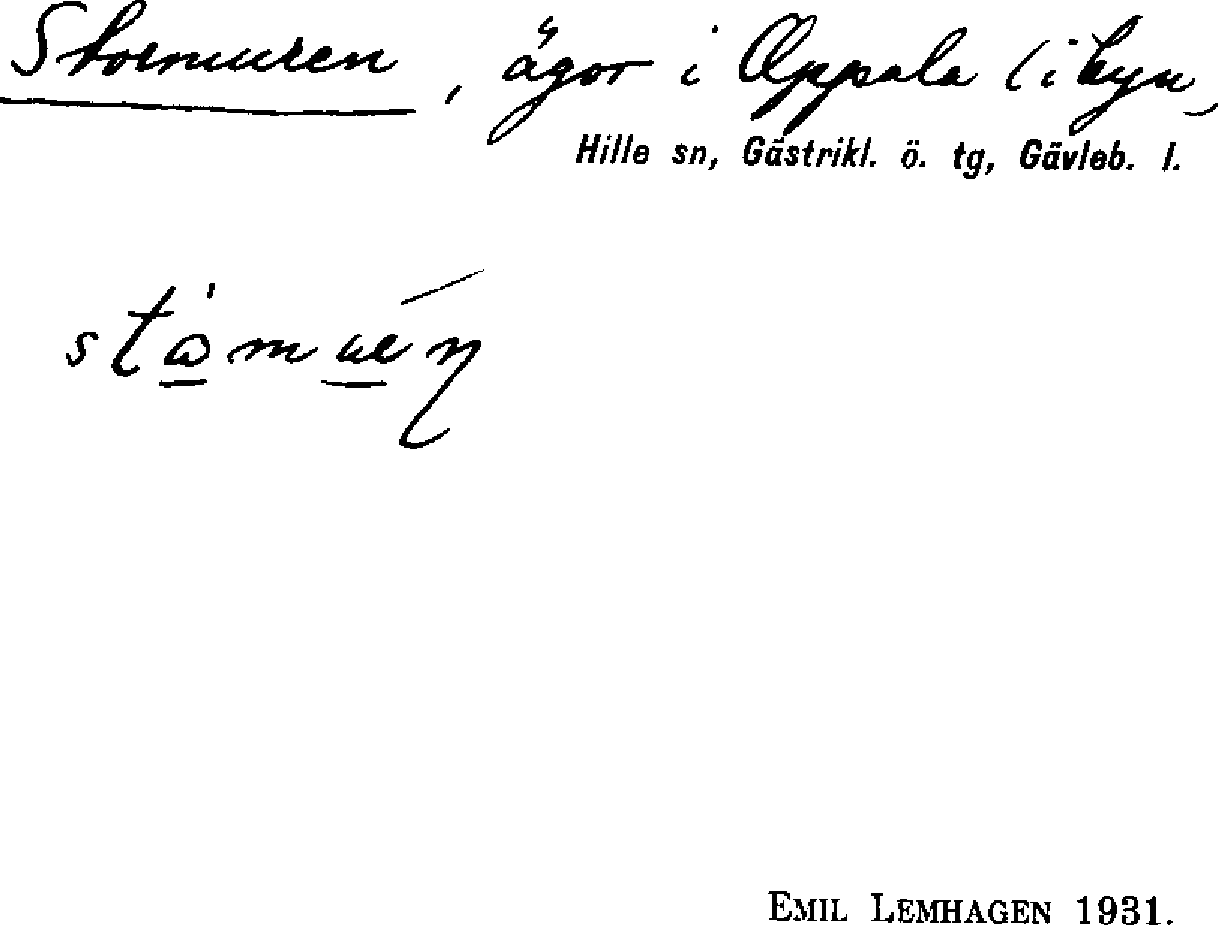 Stormuren, ägor i Oppala (i byn,
Hille sn, Gästrikl. ö. tg, Gävleb. l.
EMIL LEMHAGEN 1931.